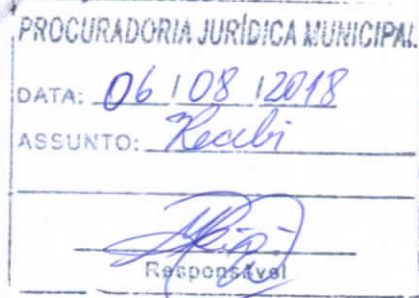 PROCURADORIA JURÍDICA MUNICIPAL
DATA: 06 / 08 / 2018
ASSUNTO: Recebi
Responsável